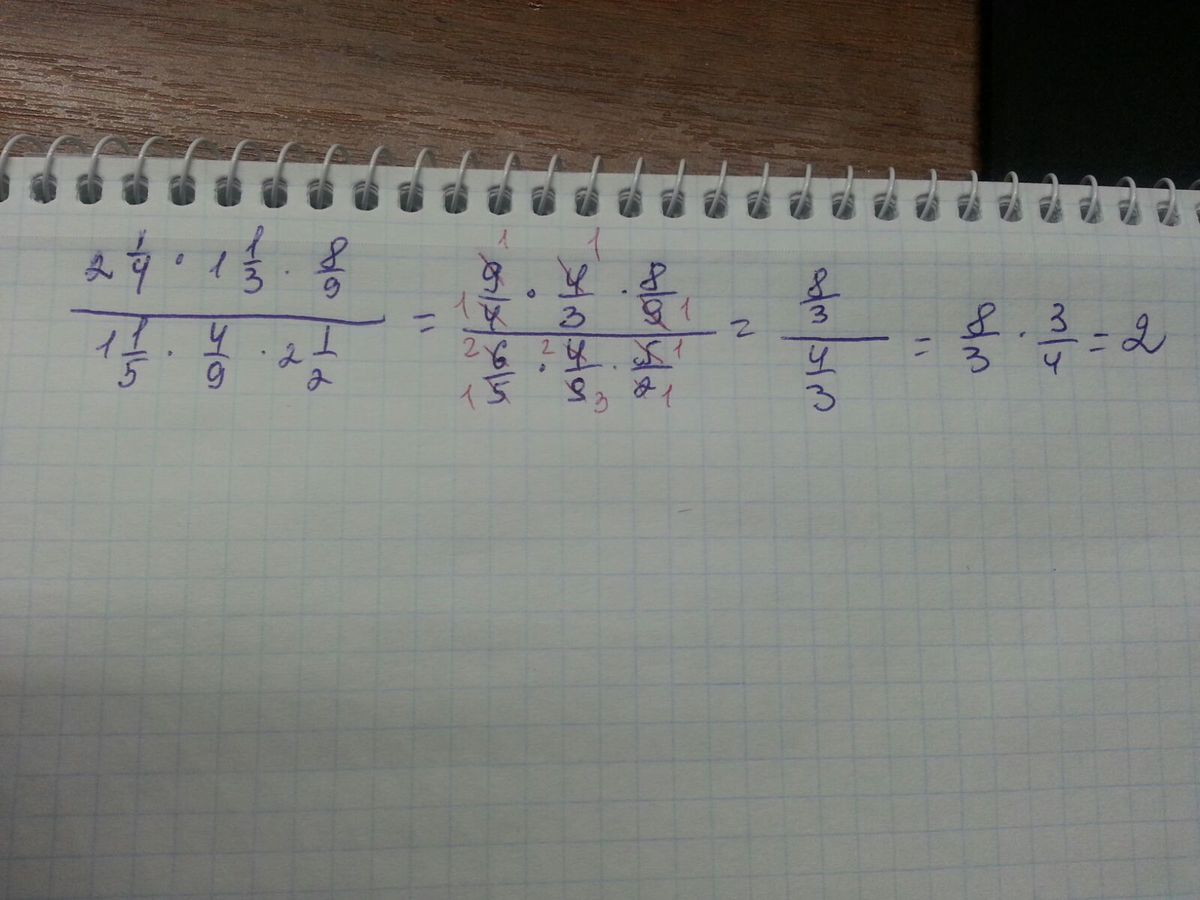 (2 1/4 · 1 1/3 · 8/9) / (1 1/5 · 4/9 · 2 1/2) = (9/4 · 4/3 · 8/9) / (6/5 · 4/9 · 5/2) = (8/3) / (4/3) = 8/3 · 3/4 = 2
1 1
1 1
2 2 1
1 3 1